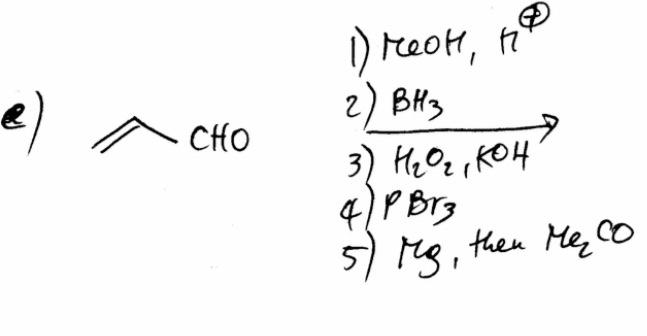 e)
CHO
1) MeOH, H⊕
2) BH₃
3) H₂O₂, KOH
4) PBr₃
5) Mg, then Me₂CO